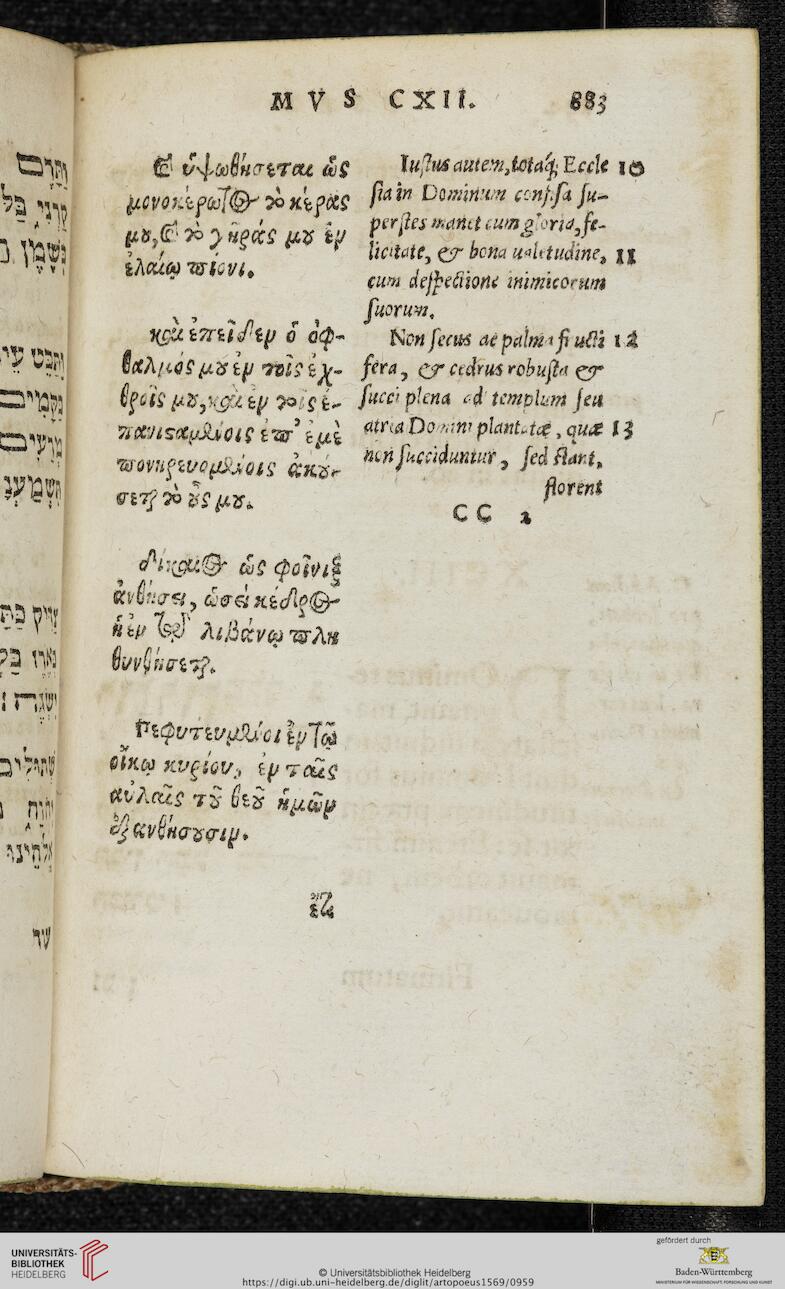 MVS CXII. 883
καὶ ὑψωθήσεται ὡς
μονοκέρωτος τὸ κέρας
μου, καὶ τὸ γῆράς μου ἐν
ἐλαίῳ πίονι.
καὶ ἐπεῖδεν ὁ ὀφ-
θαλμός μου ἐν τοῖς ἐχ-
θροῖς μου, καὶ ἐν τοῖς ἐ-
πανισταμένοις ἐπ' ἐμὲ
πονηρευομένοις ἀκού-
σεται τὸ οὖς μου.
δίκαιος ὡς φοῖνιξ
ἀνθήσει, ὡσεὶ κέδρος
ἡ ἐν τῷ λιβάνῳ πλη
θυνθήσεται.
Πεφυτευμένοι ἐν τῷ
οἴκῳ κυρίου, ἐν ταῖς
αὐλαῖς τοῦ θεοῦ ἡμῶν
ἐξανθήσουσιν.
ἔτι
Iustus autem, totaq; Eccle 10
sia in Dominum confisa su-
perstes manet cum gloria, fe-
licitate, & bona ualetudine, 11
cum despectione inimicorum
suorum.
Non secus ac palma fructi 12
fera, & cedrus robusta &
succi plena ad templum seu
atria Domini plantatæ, quæ 13
non succiduntur, sed stant,
florent
CC 2
וַתָּרֶם
קַרְנִי
נָקָמִים
שְׁתוּלִים
אֱלֹהֵינוּ
עוֹד
UNIVERSITÄTS-
BIBLIOTHEK
HEIDELBERG
© Universitätsbibliothek Heidelberg
https://digi.ub.uni-heidelberg.de/diglit/artopoeus1569/0959
gefördert durch
Baden-Württemberg
MINISTERIUM FÜR WISSENSCHAFT, FORSCHUNG UND KUNST